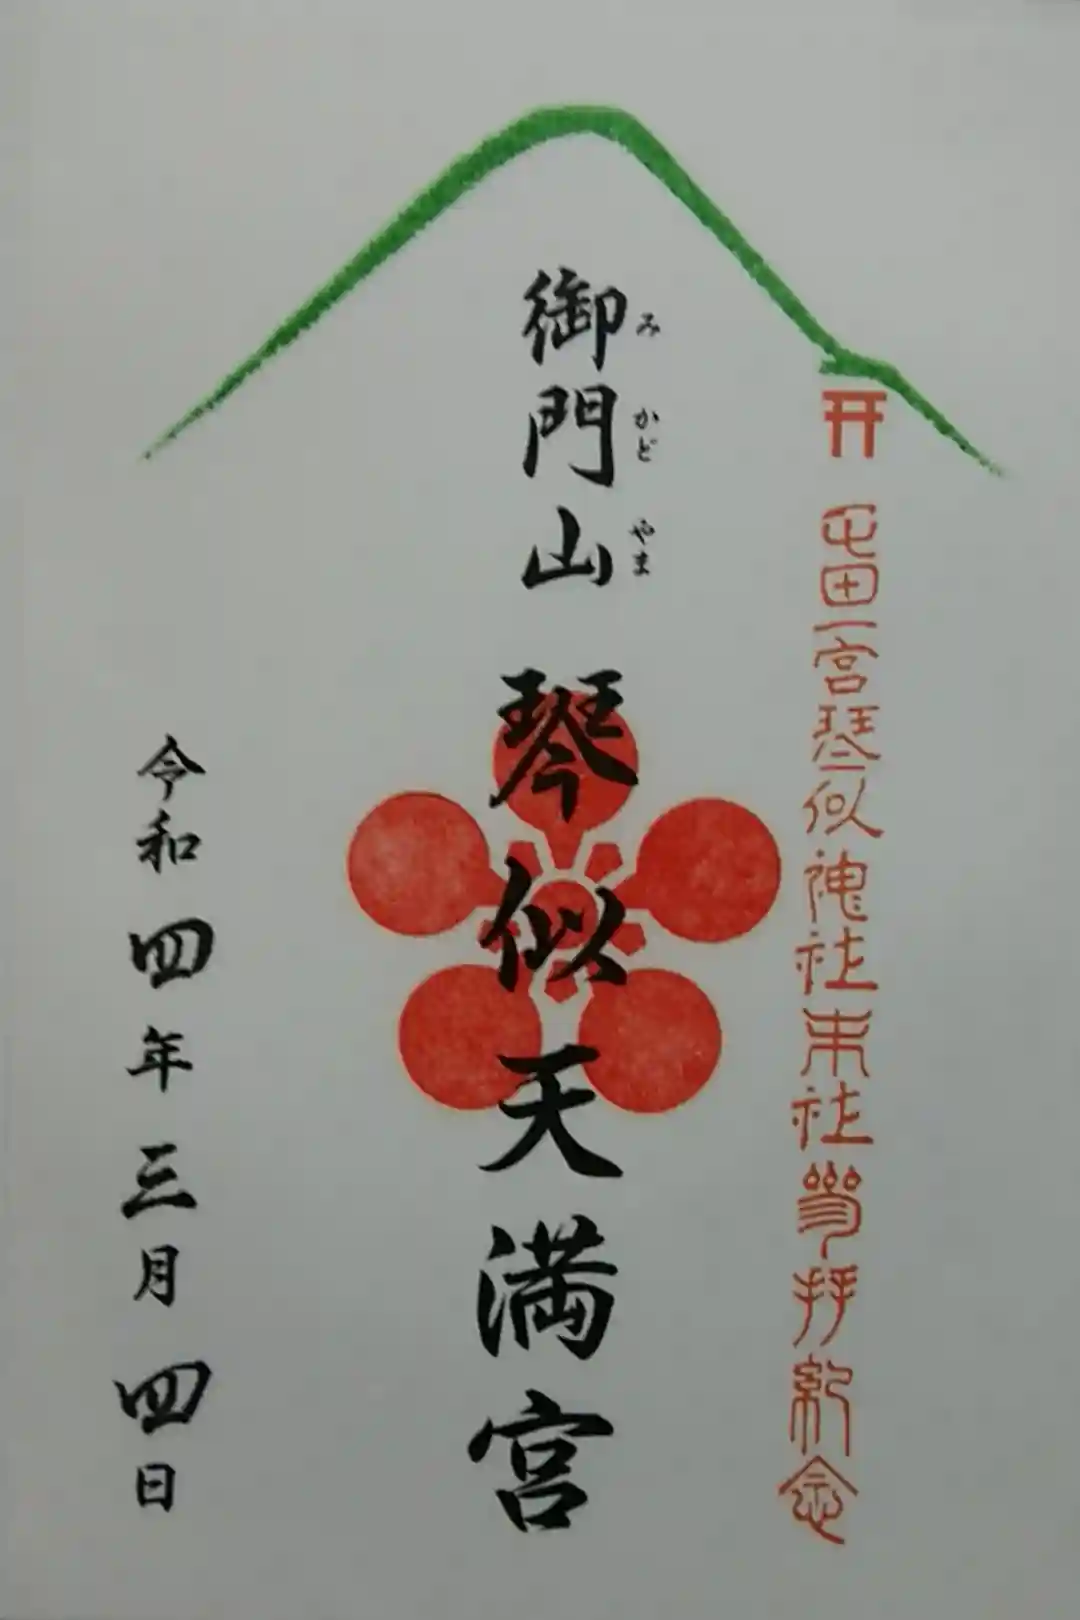 屯田一宮琴似神社末社参拝紀念
御門山 琴似天満宮
み かど やま
令和四年三月四日